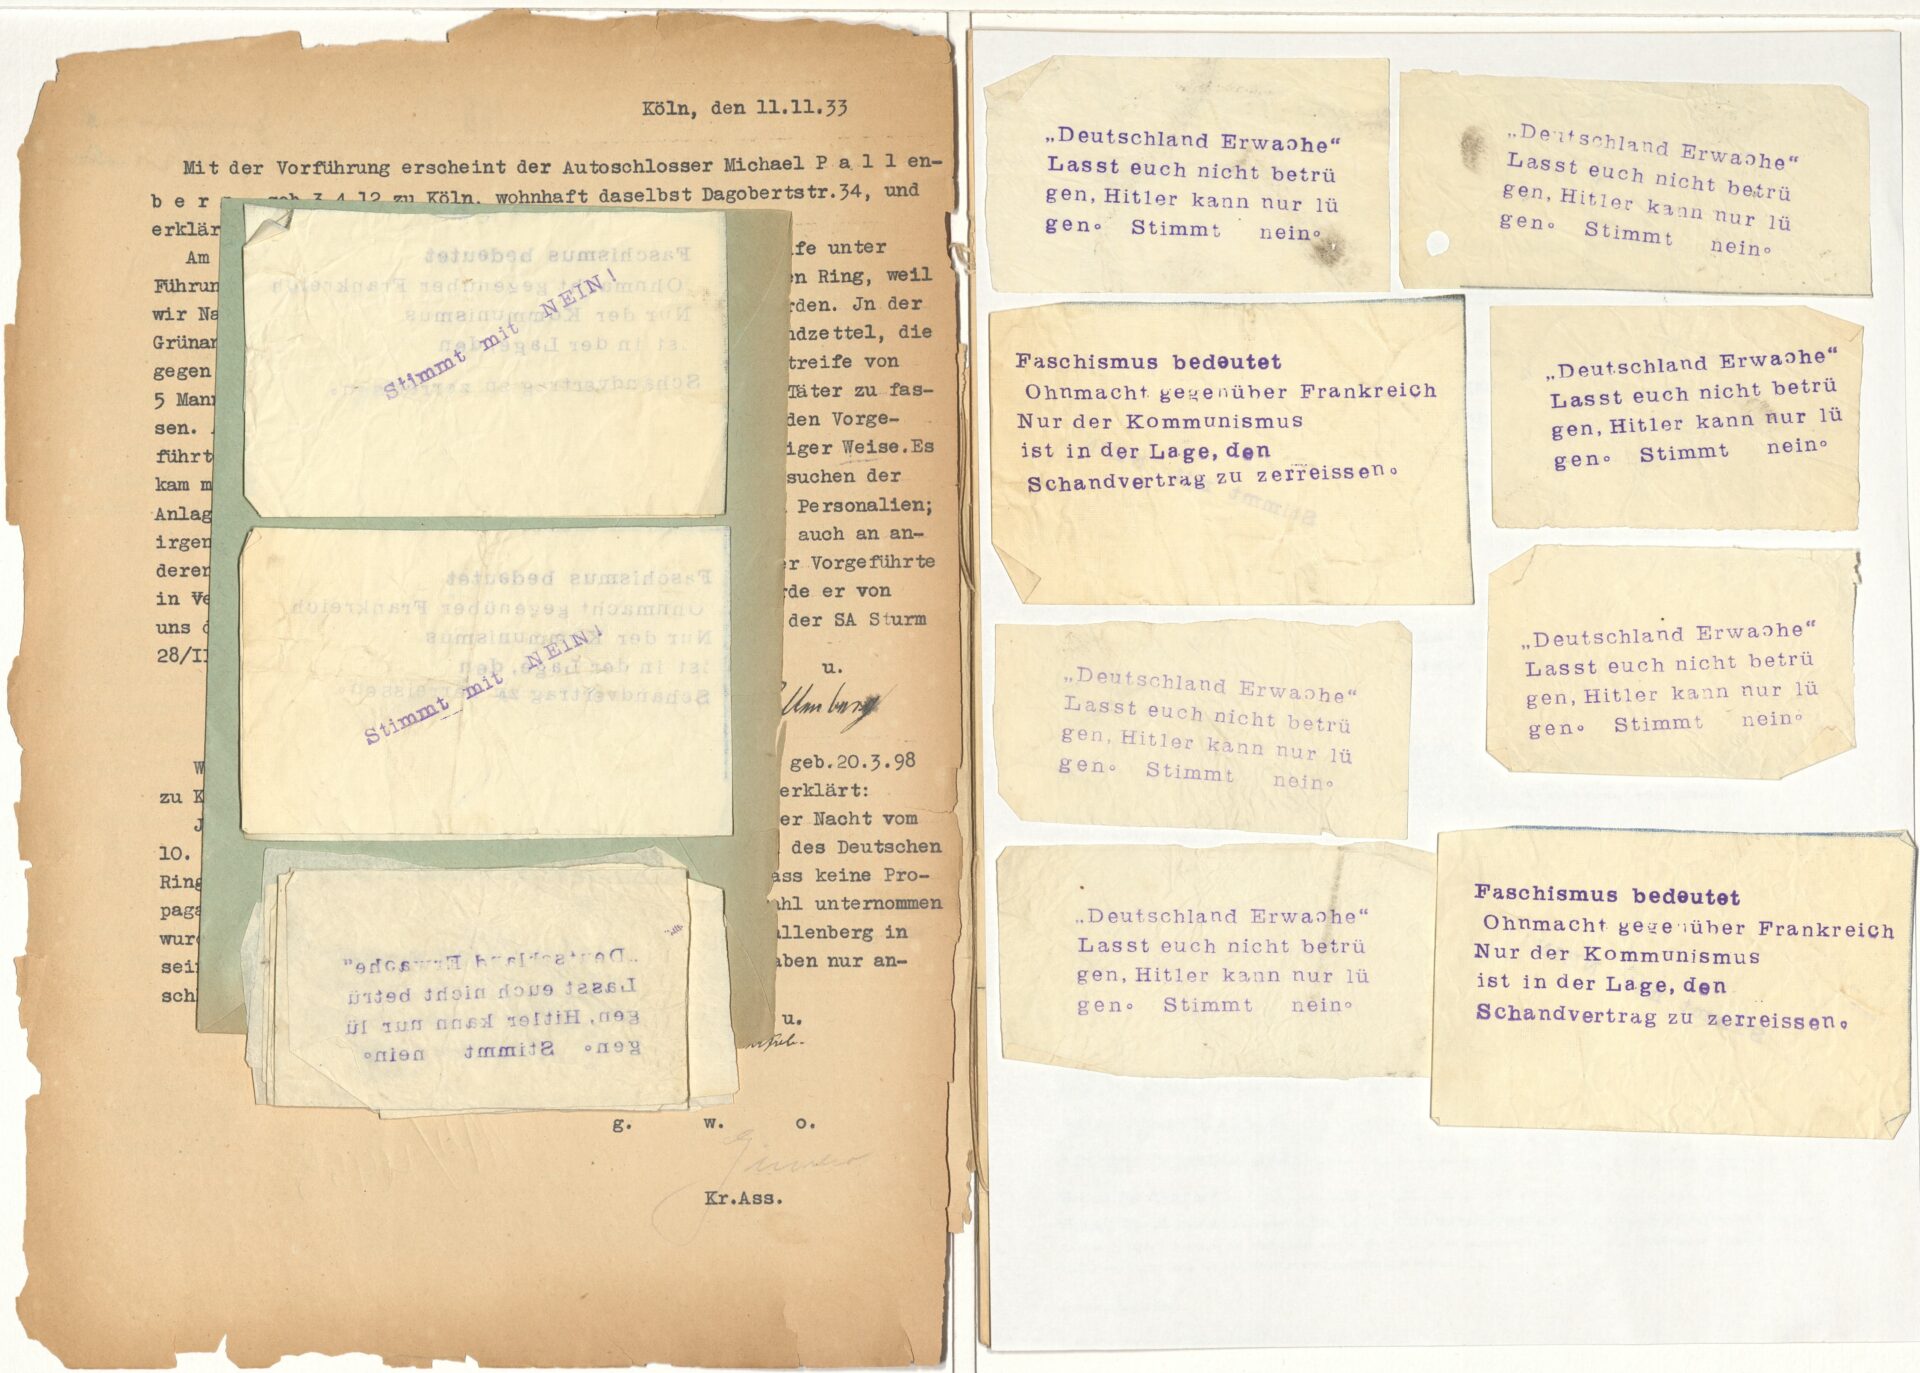 Köln, den 11.11.33
Mit der Vorführung erscheint der Autoschlosser Michael P a l l en-
b e r g, geb.3.4.12 zu Köln, wohnhaft daselbst Dagobertstr.34, und
erklär
Am
fe unter
Führun
en Ring, weil
wir Na
rden. Jn der
Grünan
ndzettel, die
gegen
treife von
5 Mann
Täter zu fas-
sen.
den Vorge-
führt
iger Weise.Es
kam m
suchen der
Anlag
Personalien;
irgen
auch an an-
deren
er Vorgeführte
in Ve
rde er von
uns d
der SA Sturm
28/II
u.
llenberg
W
geb.20.3.98
zu K
erklärt:
J
er Nacht vom
10.
des Deutschen
Ring
ass keine Pro-
paga
ahl unternommen
wurd
allenberg in
sein
aben nur an-
schl
u.
g. w. o.
Kr.Ass.
Faschismus bedeutet
Ohnmacht gegenüber Frankreich
Nur der Kommunismus
ist in der Lage, den
Schandvertrag zu zerreissen.
Stimmt mit NEIN!
Faschismus bedeutet
Ohnmacht gegenüber Frankreich
Nur der Kommunismus
ist in der Lage, den
Schandvertrag zu zerreissen.
Stimmt mit NEIN!
„Deutschland Erwache“
Lasst euch nicht betrü
gen, Hitler kann nur lü
gen. Stimmt nein.
„Deutschland Erwache“
Lasst euch nicht betrü
gen, Hitler kann nur lü
gen. Stimmt nein.
„Deutschland Erwache“
Lasst euch nicht betrü
gen, Hitler kann nur lü
gen. Stimmt nein.
Faschismus bedeutet
Ohnmacht gegenüber Frankreich
Nur der Kommunismus
ist in der Lage, den
Schandvertrag zu zerreissen.
Stimmt
„Deutschland Erwache“
Lasst euch nicht betrü
gen, Hitler kann nur lü
gen. Stimmt nein.
„Deutschland Erwache“
Lasst euch nicht betrü
gen, Hitler kann nur lü
gen. Stimmt nein.
„Deutschland Erwache“
Lasst euch nicht betrü
gen, Hitler kann nur lü
gen. Stimmt nein.
„Deutschland Erwache“
Lasst euch nicht betrü
gen, Hitler kann nur lü
gen. Stimmt nein.
Faschismus bedeutet
Ohnmacht gegenüber Frankreich
Nur der Kommunismus
ist in der Lage, den
Schandvertrag zu zerreissen.